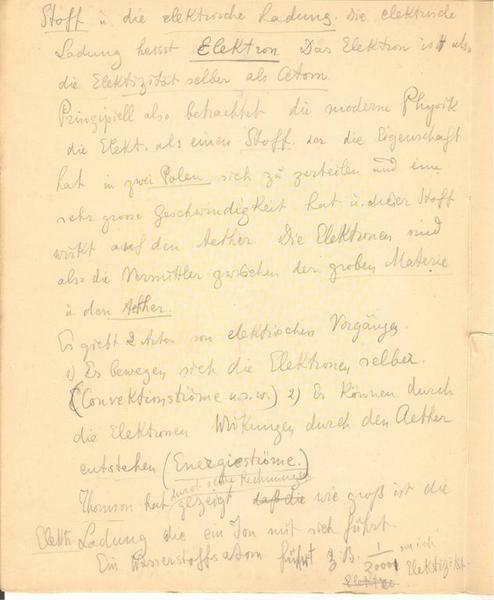 Stoff u. die elektrische Ladung. Die elektrische
Ladung heisst Elektron Das Elektron ist also
die Elektizität selber als Atom
Prinzipiell also betrachtet die moderne Physik
die Elekt. als einen Stoff. der die Eigenschaft
hat in zwei Polen sich zu zerteilen und eine
sehr grosse Geschwindigkeit hat u. dieser Stoff
wirkt auf den Aether. Die Elektronen sind
also die Vermittler zwischen der groben Materie
u den Aether.
Es giebt 2 Arten von elektrischen Vorgänge.
1) Es bewegen sich die Elektronen selber.
(Convektionströme u.s.w.) 2) Es können durch
die Elektronen Wirkungen durch den Aether
entstehen (Energieströme.)
durch seine Rechnungen
Thomson hat gezeigt daß die wie groß ist die
Elektr. Ladung die ein Jon mit sich führt.
Ein Wasserstoffsatom führt z.B. 1/20000 Elektizität.